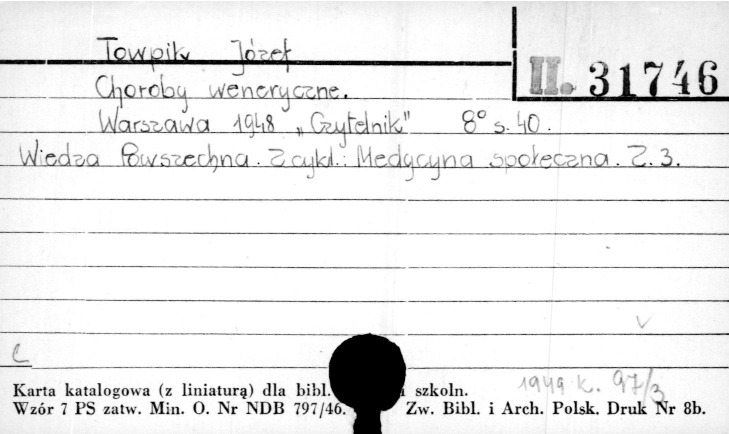 Towpik Józef
II. 31746
Choroby weneryczne.
Warszawa 1948 „Czytelnik" 8° s. 40.
Wiedza Powszechna. Z cykl.: Medycyna społeczna. Z. 3.
v
C
1949 k. 97/3
Karta katalogowa (z liniaturą) dla bibl. i szkoln.
Wzór 7 PS zatw. Min. O. Nr NDB 797/46. Zw. Bibl. i Arch. Polsk. Druk Nr 8b.